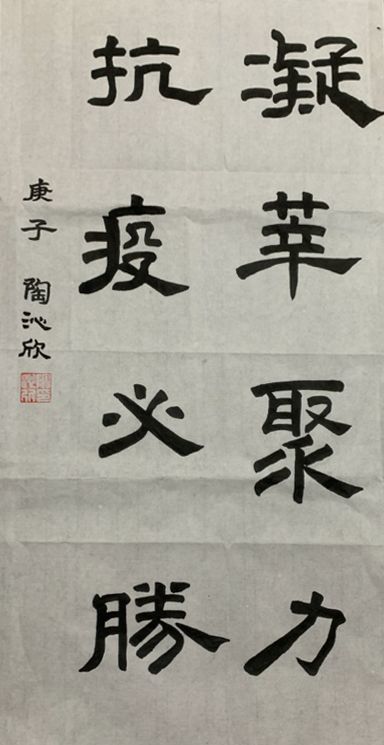 凝莘聚力
抗疫必勝
庚子 陶沁欣